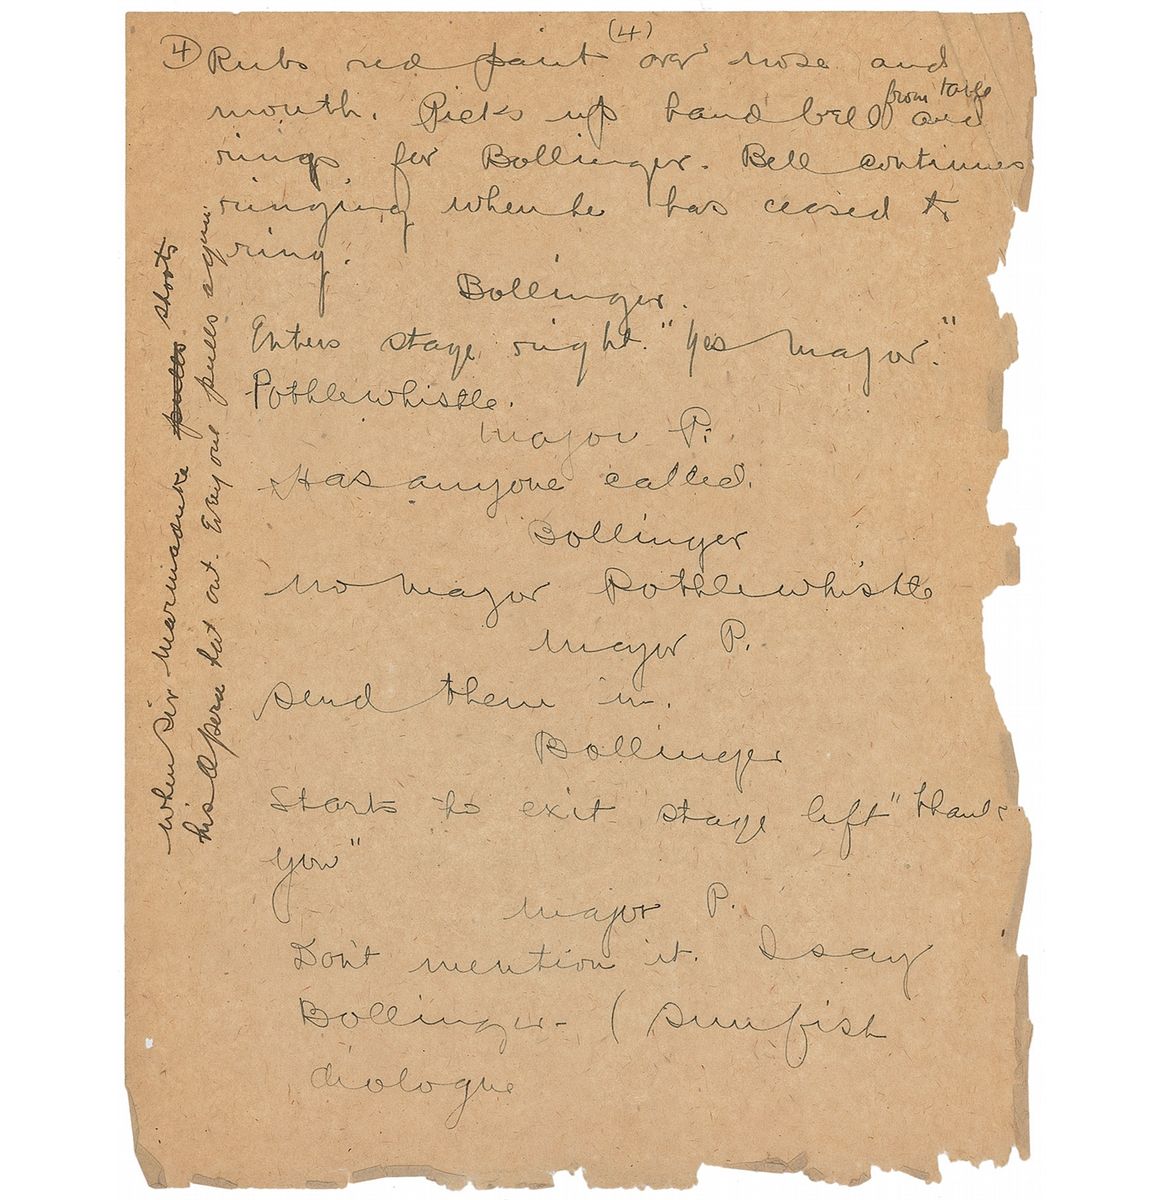 (4)
④ Rubs red paint over nose and
from table
mouth. Picks up hand bell and
rings for Bollinger. Bell continues
ringing when he has ceased to
ring.
Bollinger.
Enters stage right. "Yes Major."
Pothlewhistle.
Major P.
Has anyone called.
Bollinger
No Major Pothlewhistle
Major P.
Send them in.
Bollinger
Starts to exit stage left "Thank
you"
Major P.
Don't mention it. I say
Bollinger - ( Sunfish
diologue
when sir marmaduke pulls shoots
his opera hat out. Everyone pulls again.